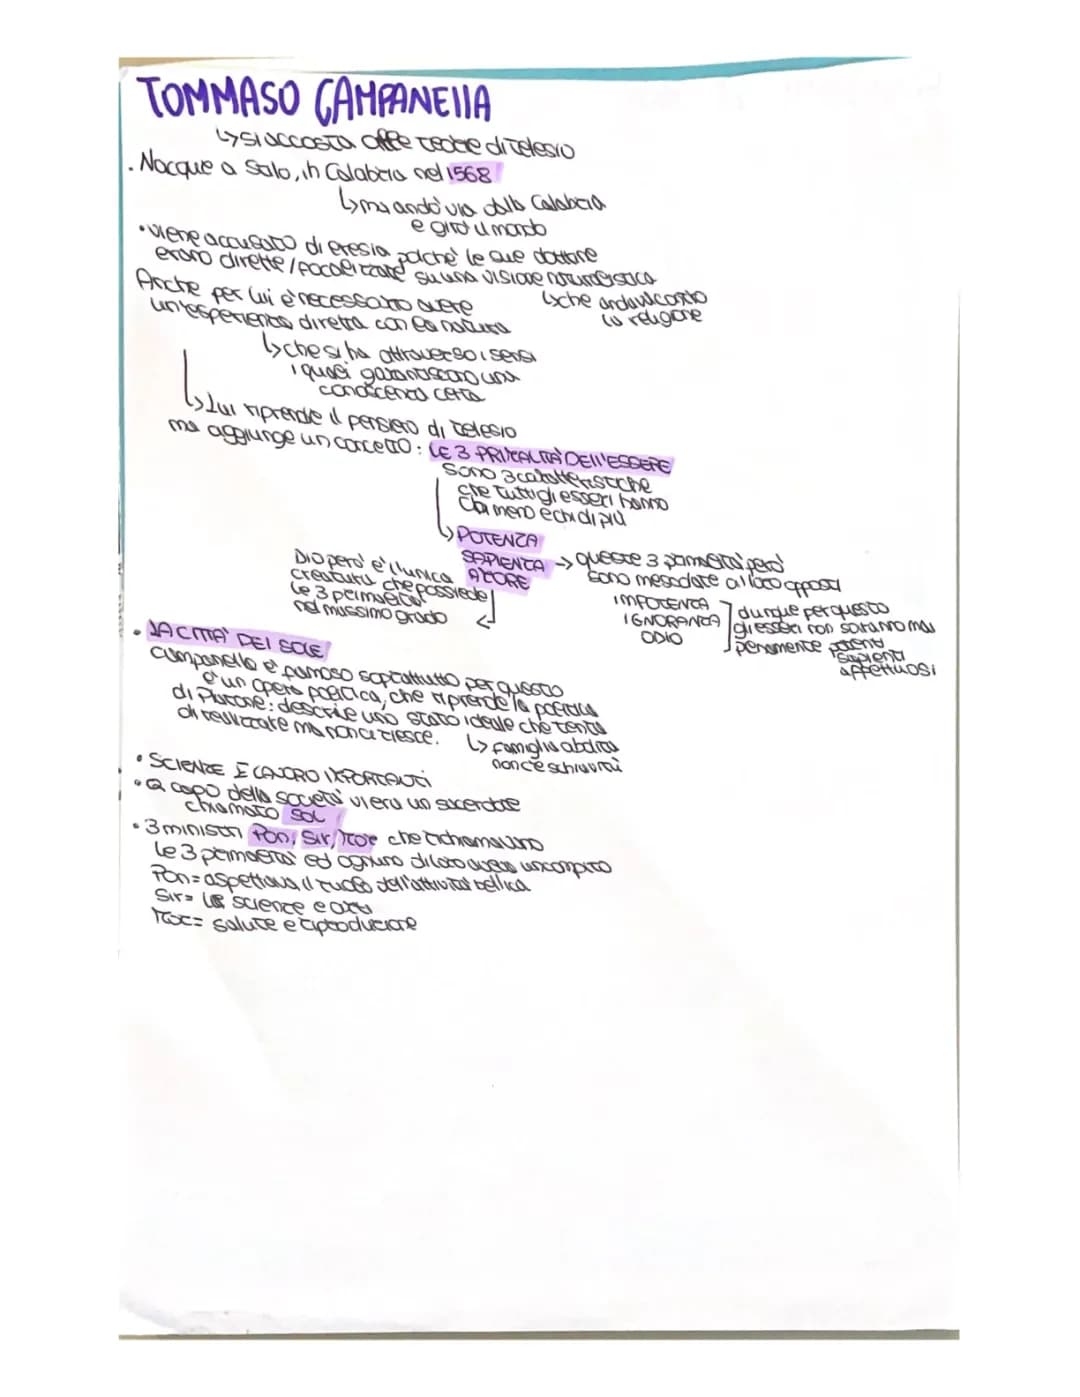 TOMMASO CAMPANELLA
↳ si accosta alle teorie di Telesio
• Nacque a Stilo, in Calabria nel 1568
↳ ma andò via dalla Calabria
e girò il mondo
• viene accusato di eresia poiché le sue dottrine
erano dirette/focalizzate su una visione naturalistica
↳ che andava contro
la religione
Anche per lui è necessario avere
un'esperienza diretta con la natura
↳ che si ha attraverso i sensi
i quali garantiscono una
conoscenza certa
↳ Lui riprende il pensiero di Telesio
ma aggiunge un concetto: LE 3 PRIMALITÀ DELL'ESSERE
sono 3 caratteristiche
che tutti gli esseri hanno
chi meno e chi di più
↳ POTENZA
SAPIENZA → queste 3 primalità però
AMORE sono mescolate ai loro opposti
IMPOTENZA
IGNORANZA
ODIO
dunque per questo
gli esseri non saranno mai
pienamente potenti
sapienti
affettuosi
Dio però è l'unica
creatura che possiede
le 3 primalità
nel massimo grado
• LA CITTÀ DEL SOLE
Campanella è famoso soprattutto per questo
è un opera politica, che riprende la politica
di Platone: descrive uno stato ideale che tenta
di realizzare ma non ci riesce.
↳ famiglia abolita
non c'è schiavitù
• SCIENZE E LAVORO IMPORTANTI
• a capo della società vi era un sacerdote
chiamato SOL
• 3 ministri Pon, Sir, Mor che richiamavano
le 3 primalità ed ognuno di loro aveva un compito
Pon = aspettava il ruolo dell'attività bellica
Sir = le scienze e arti
Mor = salute e riproduzione